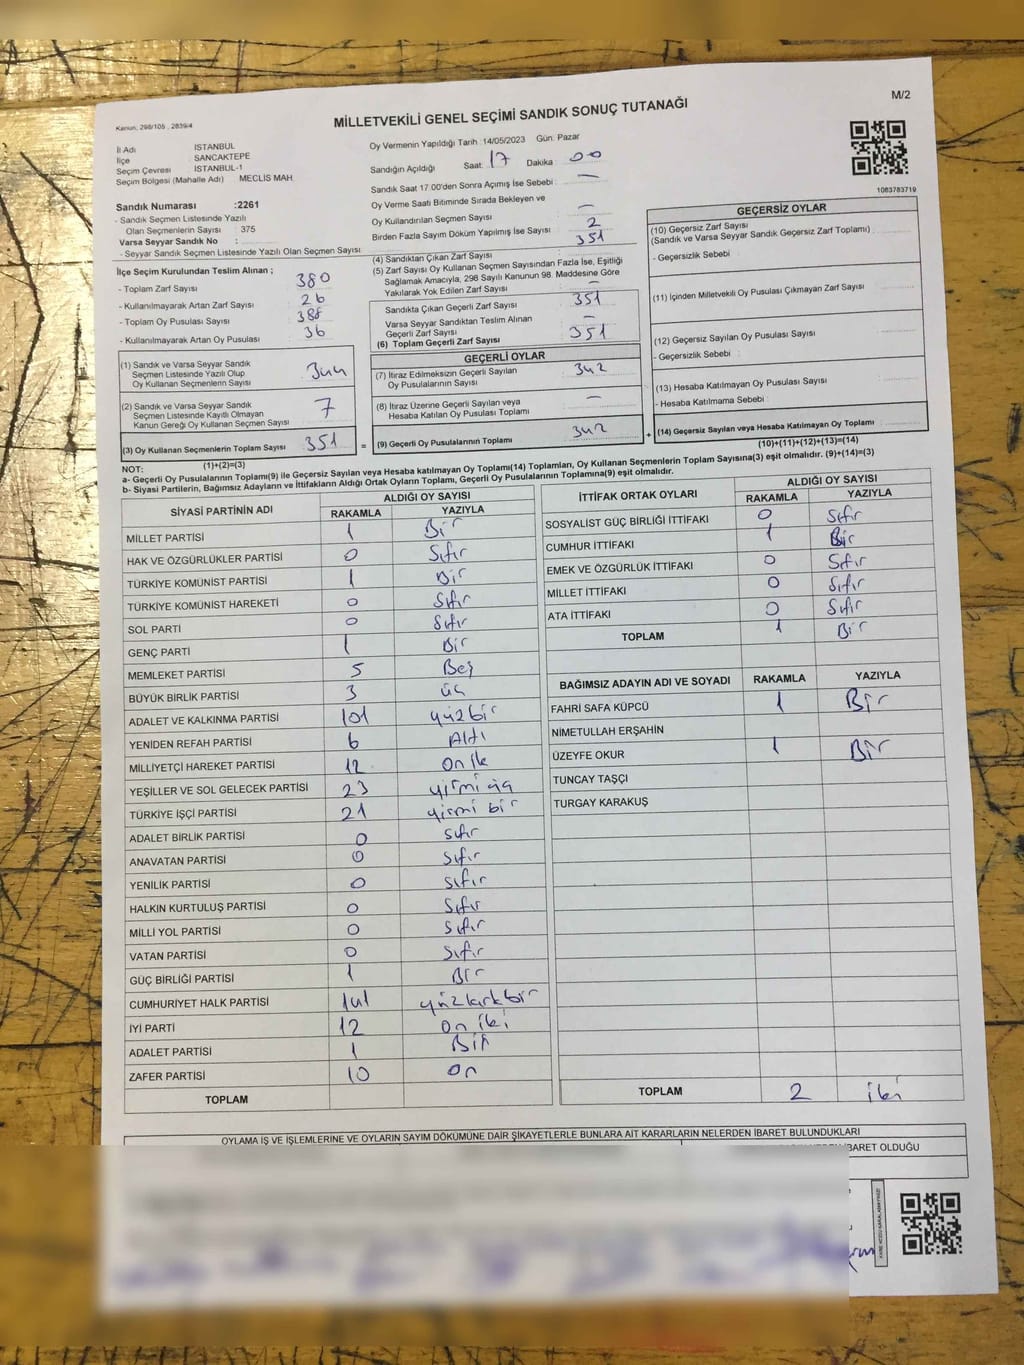 M/2
MİLLETVEKİLİ GENEL SEÇİMİ SANDIK SONUÇ TUTANAĞI
Kanun: 298/105 , 2839/4
İl Adı İSTANBUL
İlçe SANCAKTEPE
Seçim Çevresi İSTANBUL-1
Seçim Bölgesi (Mahalle Adı) MECLİS MAH.
Sandık Numarası :2261
- Sandık Seçmen Listesinde Yazılı
Olan Seçmenlerin Sayısı : 375
Varsa Seyyar Sandık No :
- Seyyar Sandık Seçmen Listesinde Yazılı Olan Seçmen Sayısı :
İlçe Seçim Kurulundan Teslim Alınan ;
- Toplam Zarf Sayısı : 380
- Kullanılmayarak Artan Zarf Sayısı : 26
- Toplam Oy Pusulası Sayısı : 388
- Kullanılmayarak Artan Oy Pusulası : 36
(1) Sandık ve Varsa Seyyar Sandık
Seçmen Listesinde Yazılı Olup
Oy Kullanan Seçmenlerin Sayısı : 344
(2) Sandık ve Varsa Seyyar Sandık
Seçmen Listesinde Kayıtlı Olmayan
Kanun Gereği Oy Kullanan Seçmen Sayısı : 7
(3) Oy Kullanan Seçmenlerin Toplam Sayısı : 351
(1)+(2)=(3)
Oy Vermenin Yapıldığı Tarih :14/05/2023 Gün: Pazar
Sandığın Açıldığı Saat: 17 Dakika : 00
Sandık Saat 17:00'den Sonra Açımış İse Sebebi : —
Oy Verme Saati Bitiminde Sırada Bekleyen ve
Oy Kullandırılan Seçmen Sayısı : —
Birden Fazla Sayım Döküm Yapılmış İse Sayısı : 2
(4) Sandıktan Çıkan Zarf Sayısı : 351
(5) Zarf Sayısı Oy Kullanan Seçmen Sayısından Fazla İse, Eşitliği
Sağlamak Amacıyla, 298 Sayılı Kanunun 98. Maddesine Göre
Yakılarak Yok Edilen Zarf Sayısı : —
Sandıkta Çıkan Geçerli Zarf Sayısı : 351
Varsa Seyyar Sandıktan Teslim Alınan
Geçerli Zarf Sayısı : —
(6) Toplam Geçerli Zarf Sayısı : 351
GEÇERLİ OYLAR
(7) İtiraz Edilmeksizin Geçerli Sayılan
Oy Pusulalarının Sayısı : 342
(8) İtiraz Üzerine Geçerli Sayılan veya
Hesaba Katılan Oy Pusulası Toplamı : —
= (9) Geçerli Oy Pusulalarının Toplamı : 342
1083783719
GEÇERSİZ OYLAR
(10) Geçersiz Zarf Sayısı
(Sandık ve Varsa Seyyar Sandık Geçersiz Zarf Toplamı) :
- Geçersizlik Sebebi :
(11) İçinden Milletvekili Oy Pusulası Çıkmayan Zarf Sayısı :
(12) Geçersiz Sayılan Oy Pusulası Sayısı :
- Geçersizlik Sebebi :
(13) Hesaba Katılmayan Oy Pusulası Sayısı :
- Hesaba Katılmama Sebebi :
+ (14) Geçersiz Sayılan veya Hesaba Katılmayan Oy Toplamı :
(10)+(11)+(12)+(13)=(14)
NOT:
a- Geçerli Oy Pusulalarının Toplamı(9) ile Geçersiz Sayılan veya Hesaba katılmayan Oy Toplamı(14) Toplamları, Oy Kullanan Seçmenlerin Toplam Sayısına(3) eşit olmalıdır. (9)+(14)=(3)
b- Siyasi Partilerin, Bağımsız Adayların ve İttifakların Aldığı Ortak Oyların Toplamı, Geçerli Oy Pusulalarının Toplamına(9) eşit olmalıdır.
SİYASİ PARTİNİN ADI ALDIĞI OY SAYISI
RAKAMLA YAZIYLA
MİLLET PARTİSİ 1 Bir
HAK VE ÖZGÜRLÜKLER PARTİSİ 0 Sıfır
TÜRKİYE KOMÜNİST PARTİSİ 1 Bir
TÜRKİYE KOMÜNİST HAREKETİ 0 Sıfır
SOL PARTİ 0 Sıfır
GENÇ PARTİ 1 Bir
MEMLEKET PARTİSİ 5 Beş
BÜYÜK BİRLİK PARTİSİ 3 üç
ADALET VE KALKINMA PARTİSİ 101 yüzbir
YENİDEN REFAH PARTİSİ 6 Altı
MİLLİYETÇİ HAREKET PARTİSİ 12 on ik
YEŞİLLER VE SOL GELECEK PARTİSİ 23 yirmi üç
TÜRKİYE İŞÇİ PARTİSİ 21 yirmi bir
ADALET BİRLİK PARTİSİ 0 sıfır
ANAVATAN PARTİSİ 0 Sıfır
YENİLİK PARTİSİ 0 sıfır
HALKIN KURTULUŞ PARTİSİ 0 Sıfır
MİLLİ YOL PARTİSİ 0 Sıfır
VATAN PARTİSİ 0 Sıfır
GÜÇ BİRLİĞİ PARTİSİ 1 Bir
CUMHURİYET HALK PARTİSİ 141 yüzkırkbir
İYİ PARTİ 12 on iki
ADALET PARTİSİ 1 Bir
ZAFER PARTİSİ 10 on
TOPLAM
İTTİFAK ORTAK OYLARI ALDIĞI OY SAYISI
RAKAMLA YAZIYLA
SOSYALİST GÜÇ BİRLİĞİ İTTİFAKI 0 Sıfır
CUMHUR İTTİFAKI 1 Bir
EMEK VE ÖZGÜRLÜK İTTİFAKI 0 Sıfır
MİLLET İTTİFAKI 0 Sıfır
ATA İTTİFAKI 0 Sıfır
TOPLAM 1 Bir
BAĞIMSIZ ADAYIN ADI VE SOYADI RAKAMLA YAZIYLA
FAHRİ SAFA KÜPCÜ 1 Bir
NİMETULLAH ERŞAHİN
ÜZEYFE OKUR 1 Bir
TUNCAY TAŞÇI
TURGAY KARAKUŞ
TOPLAM 2 iki
OYLAMA İŞ VE İŞLEMLERİNE VE OYLARIN SAYIM DÖKÜMÜNE DAİR ŞİKAYETLERLE BUNLARA AİT KARARLARIN NELERDEN İBARET BULUNDUKLARI
İBARET OLDUĞU